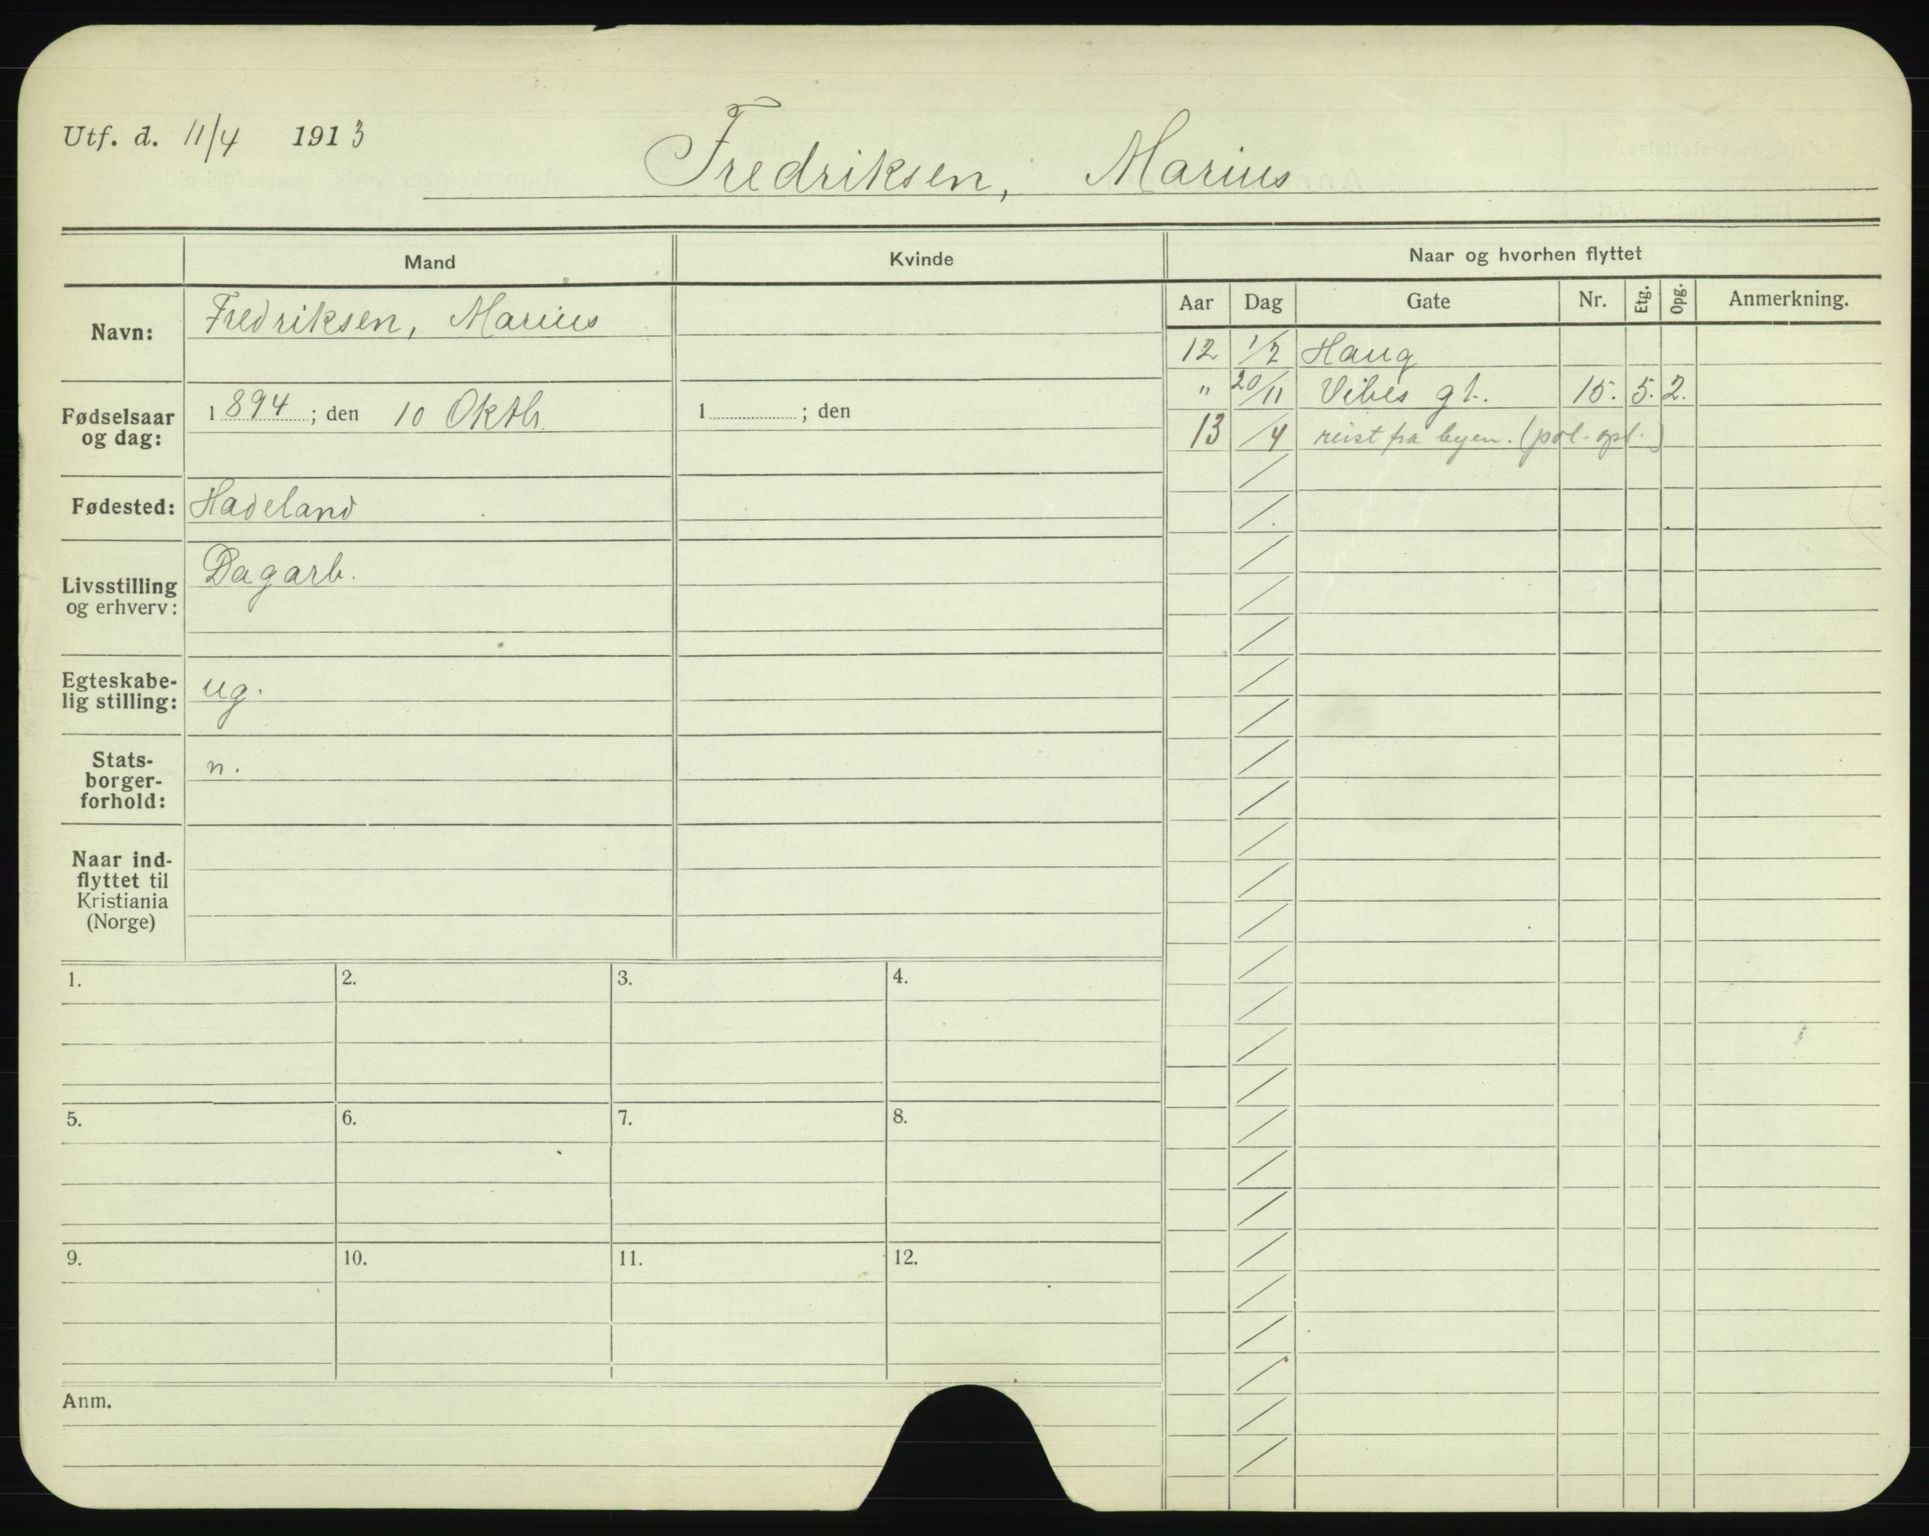 Utf. d. 11/4 1913
Fredriksen, Marius
Mand
Kvinde
Naar og hvorhen flyttet
Navn:
Fredriksen, Marius
Fødselsaar og dag:
1894; den 10 Oktbr.
1 ; den
Fødested:
Hadeland
Livsstilling og erhverv:
Dagarb.
Egteskabe-
lig stilling:
ug.
Stats-
borger-
forhold:
n.
Naar ind-
flyttet til
Kristiania
(Norge)
Aar Dag Gate Nr. Etg. Opg. Anmerkning.
12 1/2 Haug
" 20/11 Vibes gt. 15. 5. 2.
13 /4 reist fra byen. (pol-opl.)
1. 2. 3. 4.
5. 6. 7. 8.
9. 10. 11. 12.
Anm.